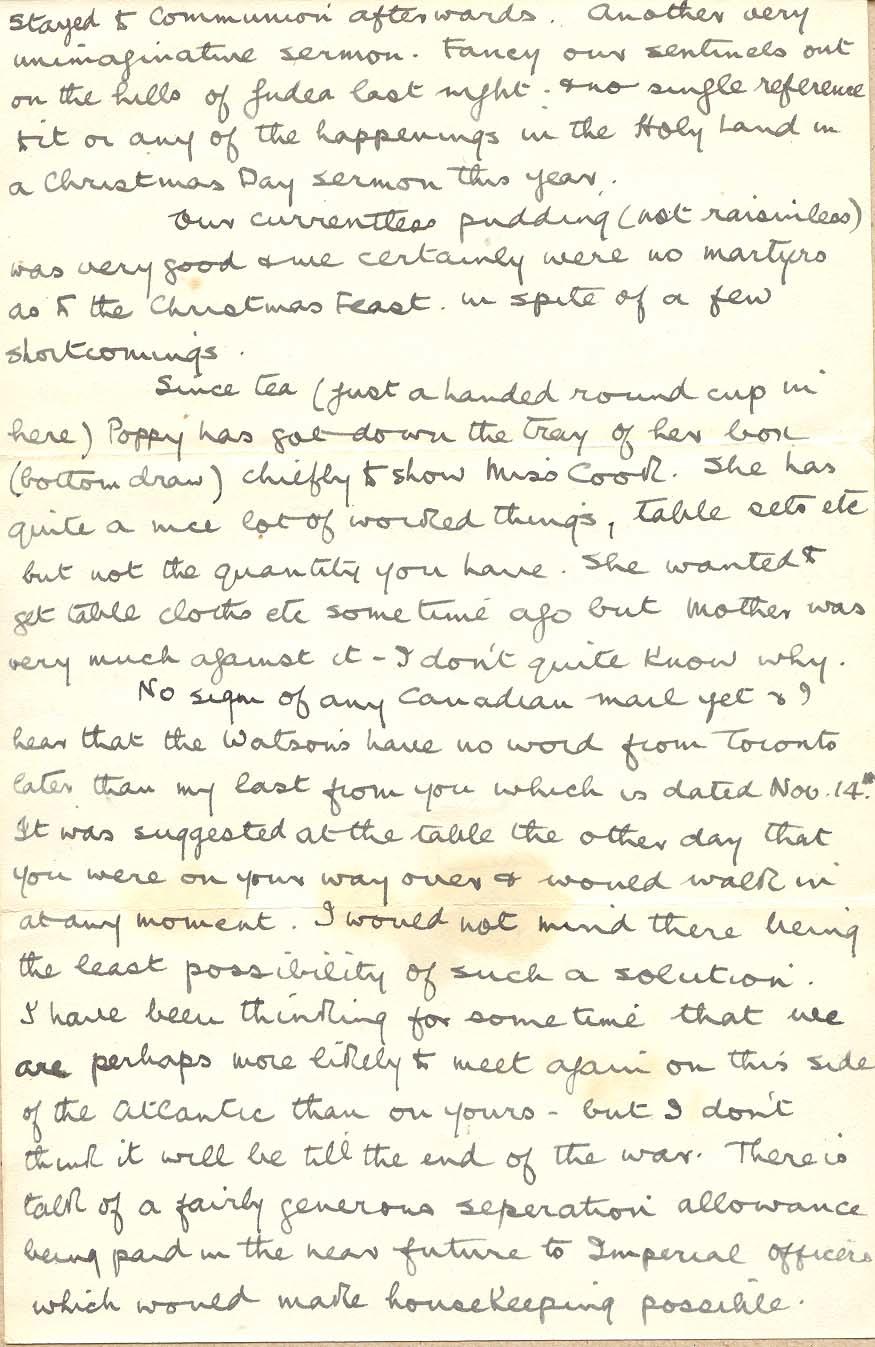 stayed to Communion afterwards. Another very
unimaginative sermon. Fancy our sentinels out
on the hills of Judea last night - & no single reference
to it or any of the happenings in the Holy Land in
a Christmas Day sermon this year.
Our currentless pudding (not raisinless)
was very good & we certainly were no martyrs
as to the Christmas Feast. in spite of a few
shortcomings.
Since tea (just a handed round cup in
here) Poppy has got down the tray of her box
(bottom draw) chiefly to show Miss Cook. She has
quite a nice lot of worked things, table sets etc
but not the quantity you have. She wanted to
get table cloths etc some time ago but Mother was
very much against it - I don't quite know why.
No sign of any Canadian mail yet & I
hear that the Watsons have no word from Toronto
later than my last from you which is dated Nov. 14th.
It was suggested at the table the other day that
you were on your way over & would walk in
at any moment. I would not mind there being
the least possibility of such a solution.
I have been thinking for some time that we
are perhaps more likely to meet again on this side
of the Atlantic than on yours - but I don't
think it will be till the end of the war. There is
talk of a fairly generous seperation allowance
being paid in the near future to Imperial Officers
which would make housekeeping possible.